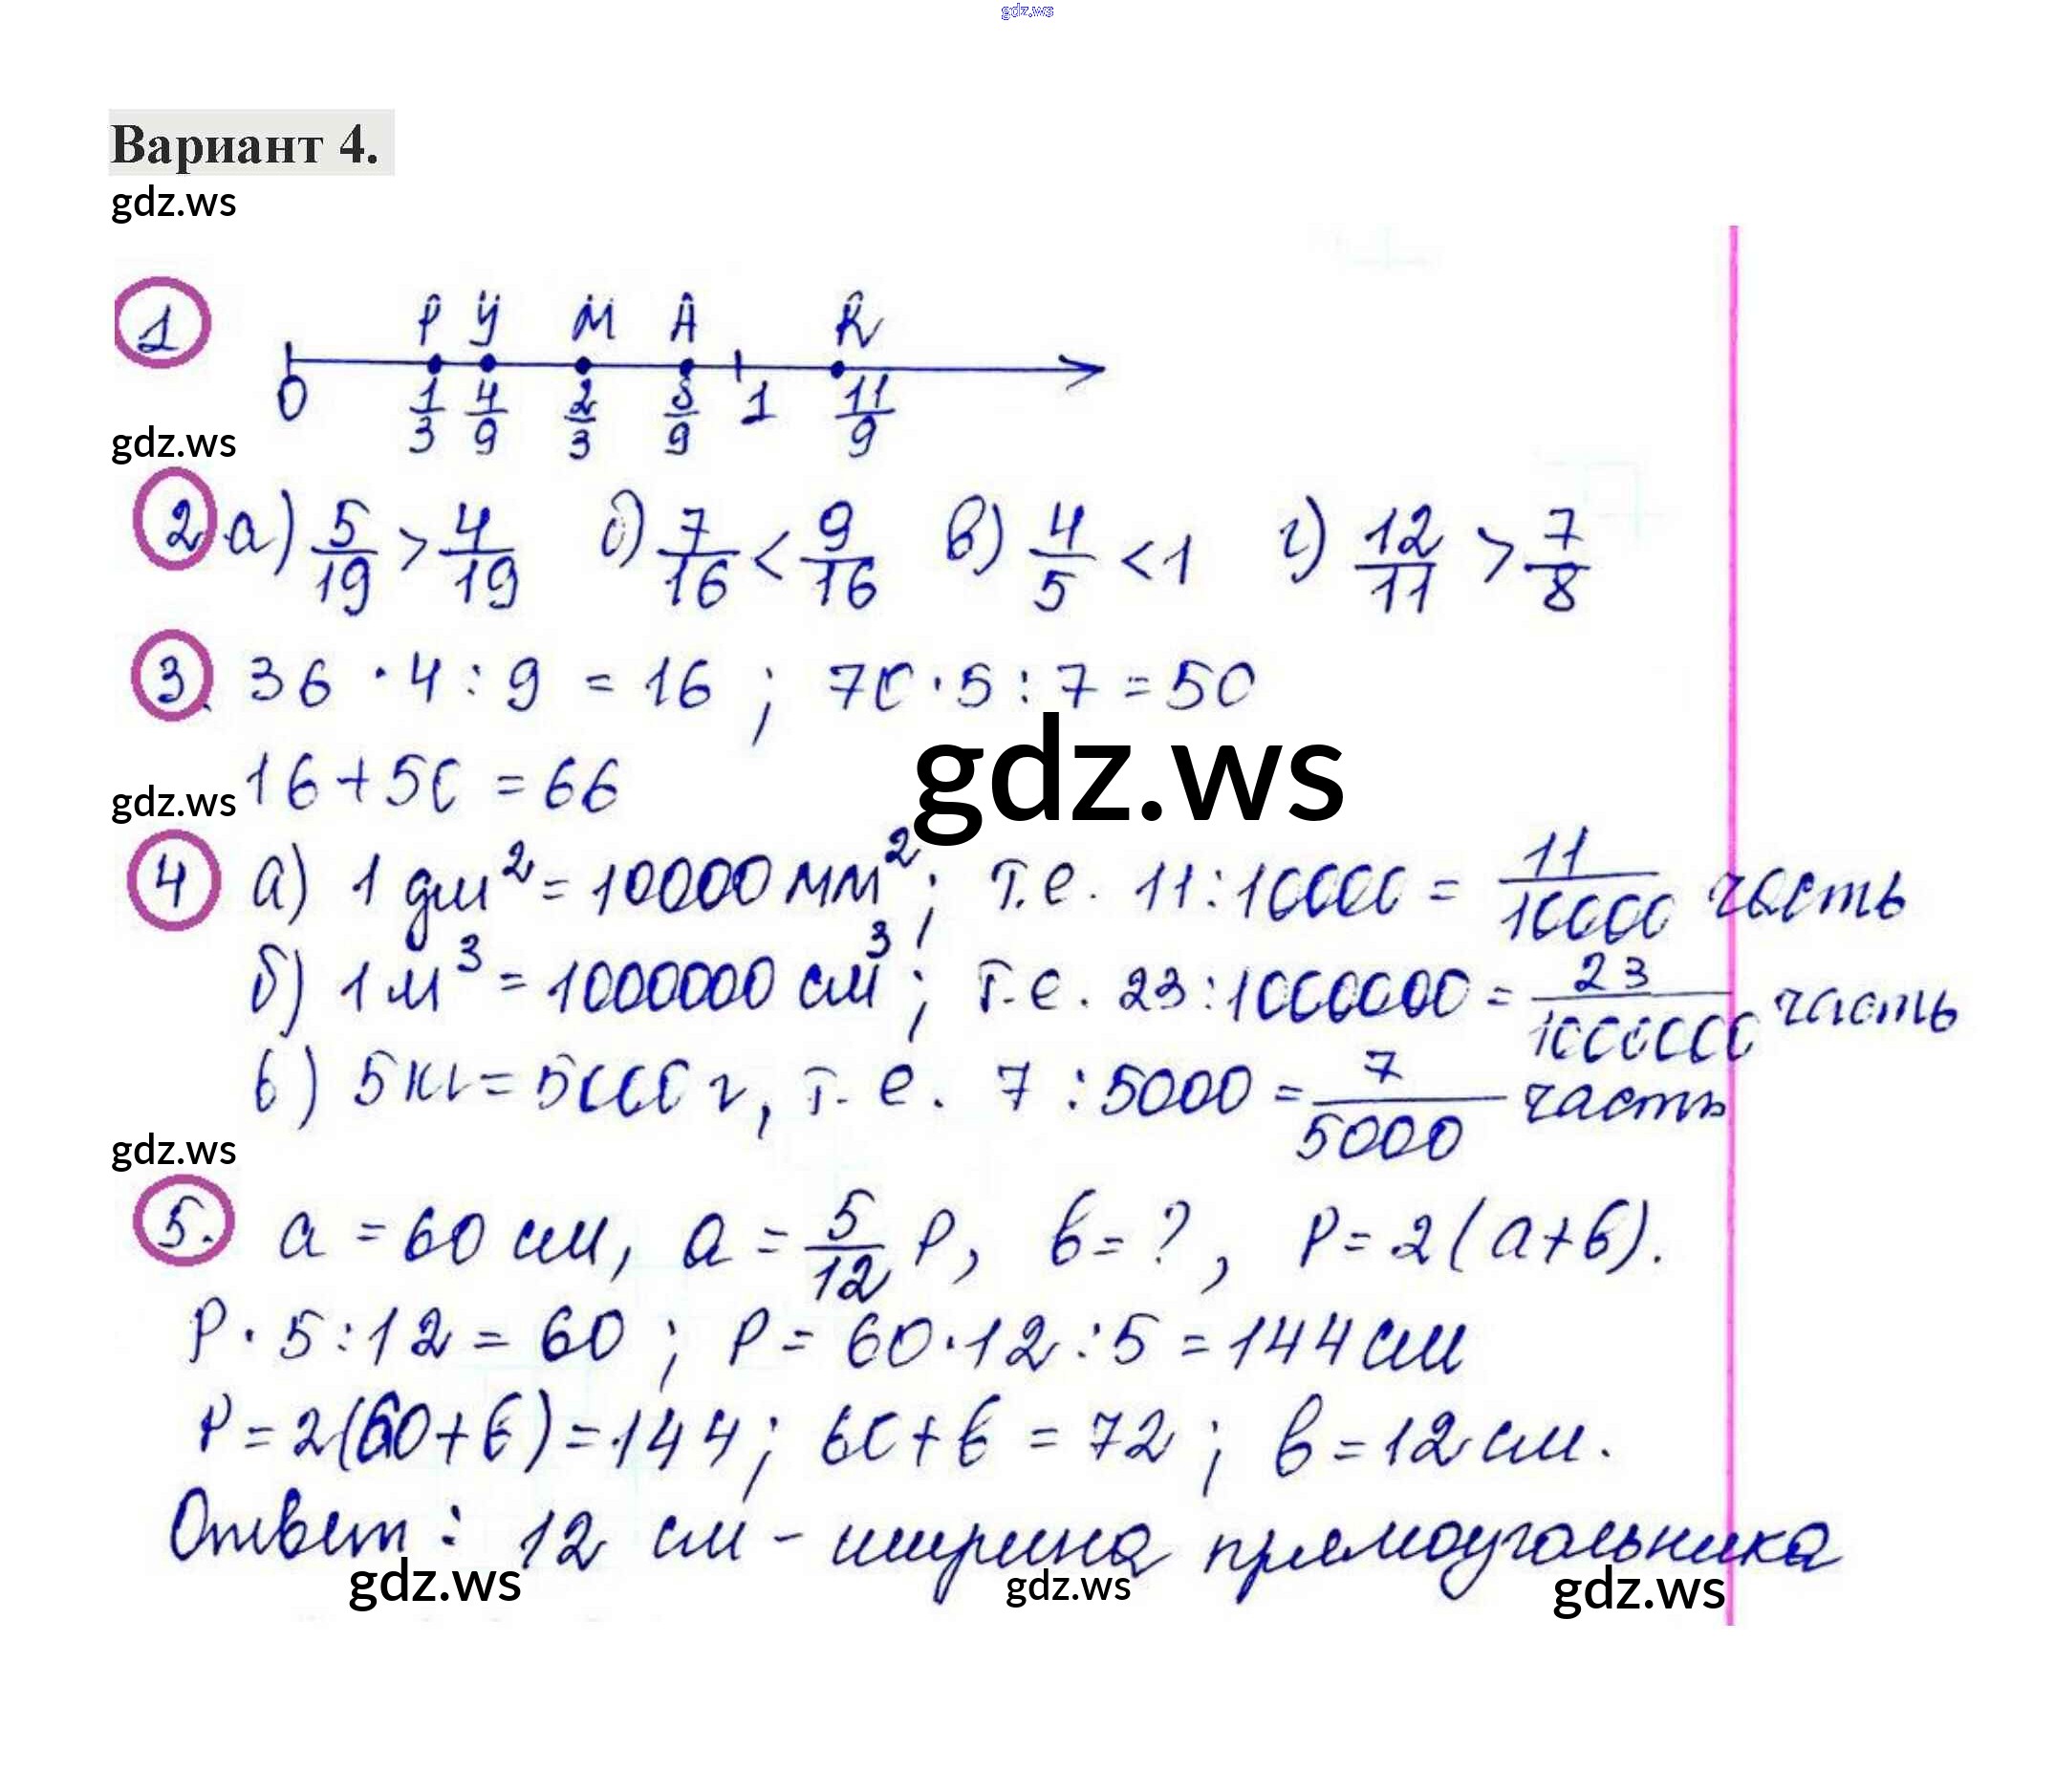 gdz.ws
Вариант 4.
gdz.ws
1 P У М А R
0 1/3 4/9 2/3 8/9 1 11/9
gdz.ws
2 а) 5/19 > 4/19 б) 7/16 < 9/16 в) 4/5 < 1 г) 12/11 > 7/8
3. 36 · 4 : 9 = 16 ; 70 · 5 : 7 = 50
gdz.ws
gdz.ws 16 + 50 = 66
4 а) 1 дм² = 10000 мм²; т.е. 11 : 10000 = 11/10000 часть
б) 1 м³ = 1000000 см³; т.е. 23 : 1000000 = 23/1000000 часть
в) 5 кг = 5000 г, т.е. 7 : 5000 = 7/5000 часть
gdz.ws
5. a = 60 см, a = 5/12 P, в = ?, P = 2(a + в).
P · 5 : 12 = 60 ; P = 60 · 12 : 5 = 144 см
P = 2(60 + в) = 144; 60 + в = 72 ; в = 12 см.
Ответ : 12 см - ширина прямоугольника
gdz.ws gdz.ws gdz.ws